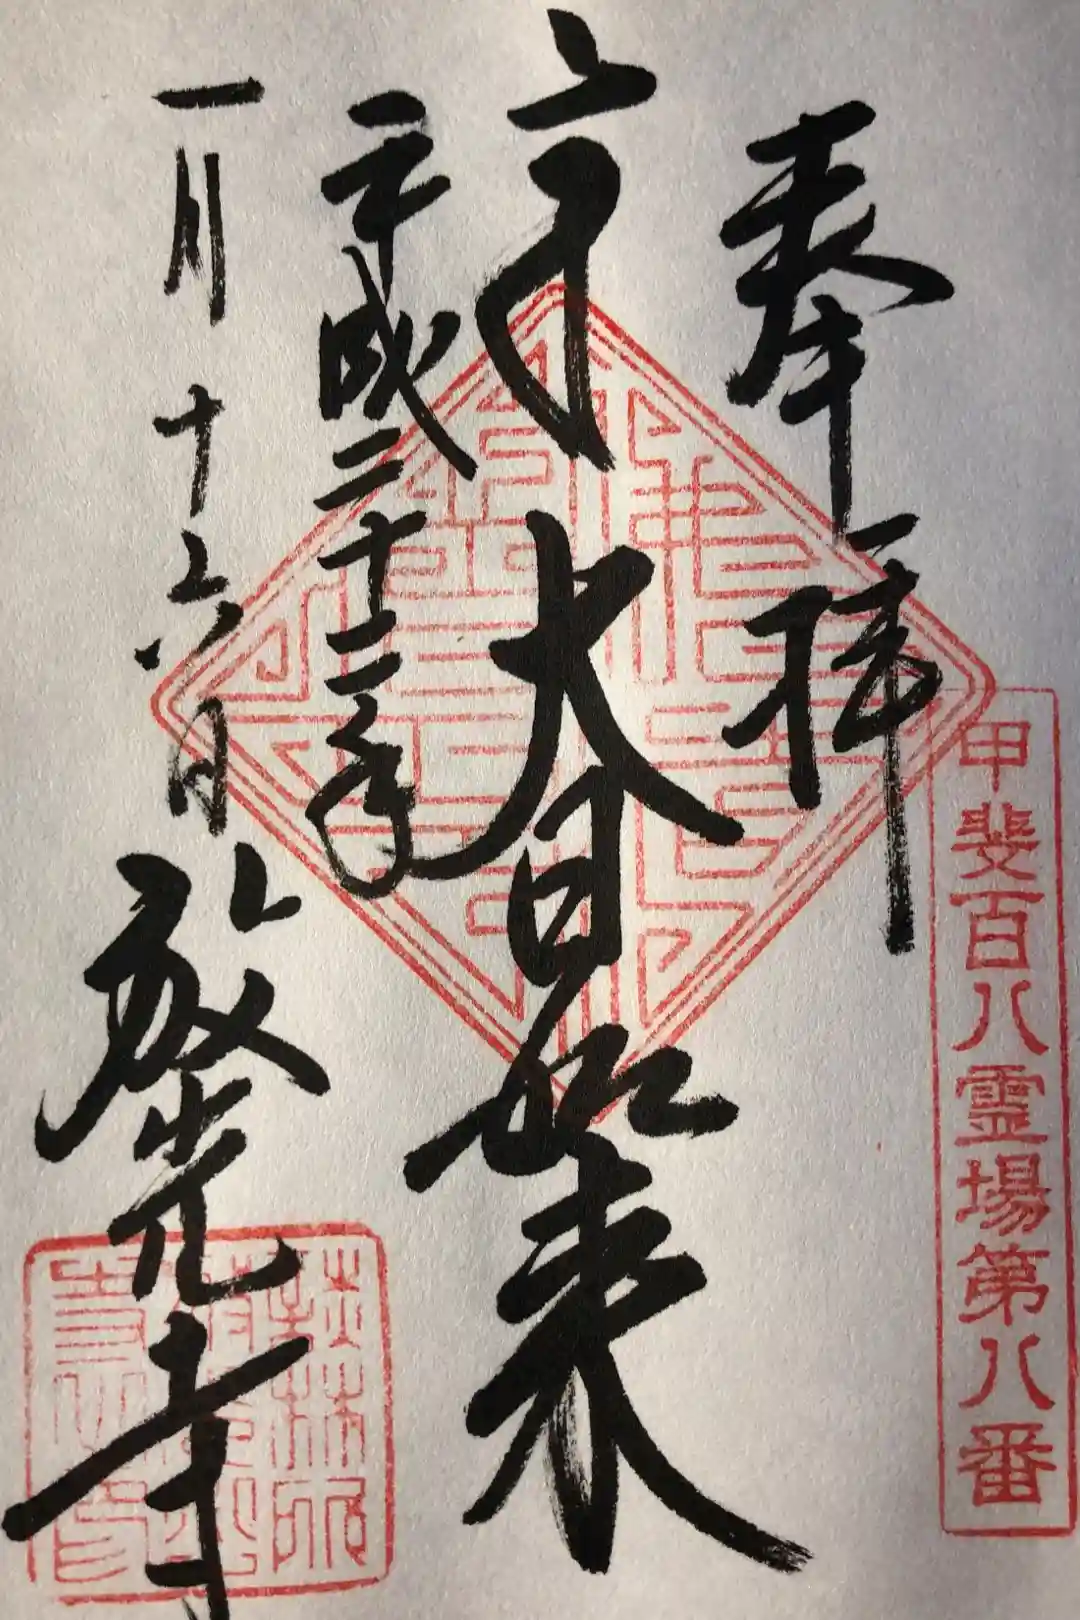 奉拝
甲斐百八霊場第八番
大日如来
平成二十二年
一月十六日
放光寺